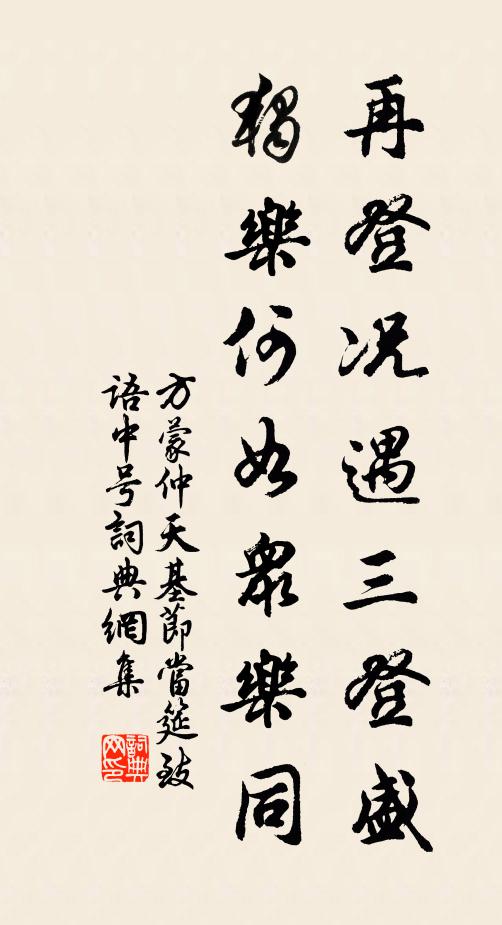 再登况遇三登盛
獨樂何如眾樂同
方蒙仲天基節當筵致
語中号詞典網集
詞典
网印